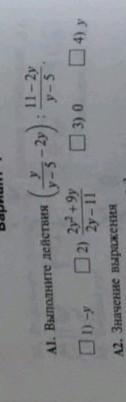 Вариант
A1. Выполните действия (y/(y − 5) − 2y) : (11 − 2y)/(y − 5).
1) −y 2) (2y² + 9y)/(2y − 11) 3) 0 4) y
A2. Значение выражения